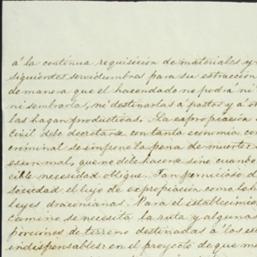 á la continua requisicion de materiales y
siguientes servidumbres para su estraccion
de manera que el hacendado no podrá ni
ni sembrarla, ni destinarla á pastos y á
las hagan productivas. La espropiacion
civil debe decretarse con tanta economía con
criminal se impone la pena de muerte:
es un mal, que no debe hacerse sino cuando
necesidad obligue. Tan pernicioso
sociedad el lujo de espropiacion como
leyes draconianas. Para el establecimi
camino se necesita la ruta y algunas
porciones de terreno destinadas á los
indispensables en el proyecto de que me